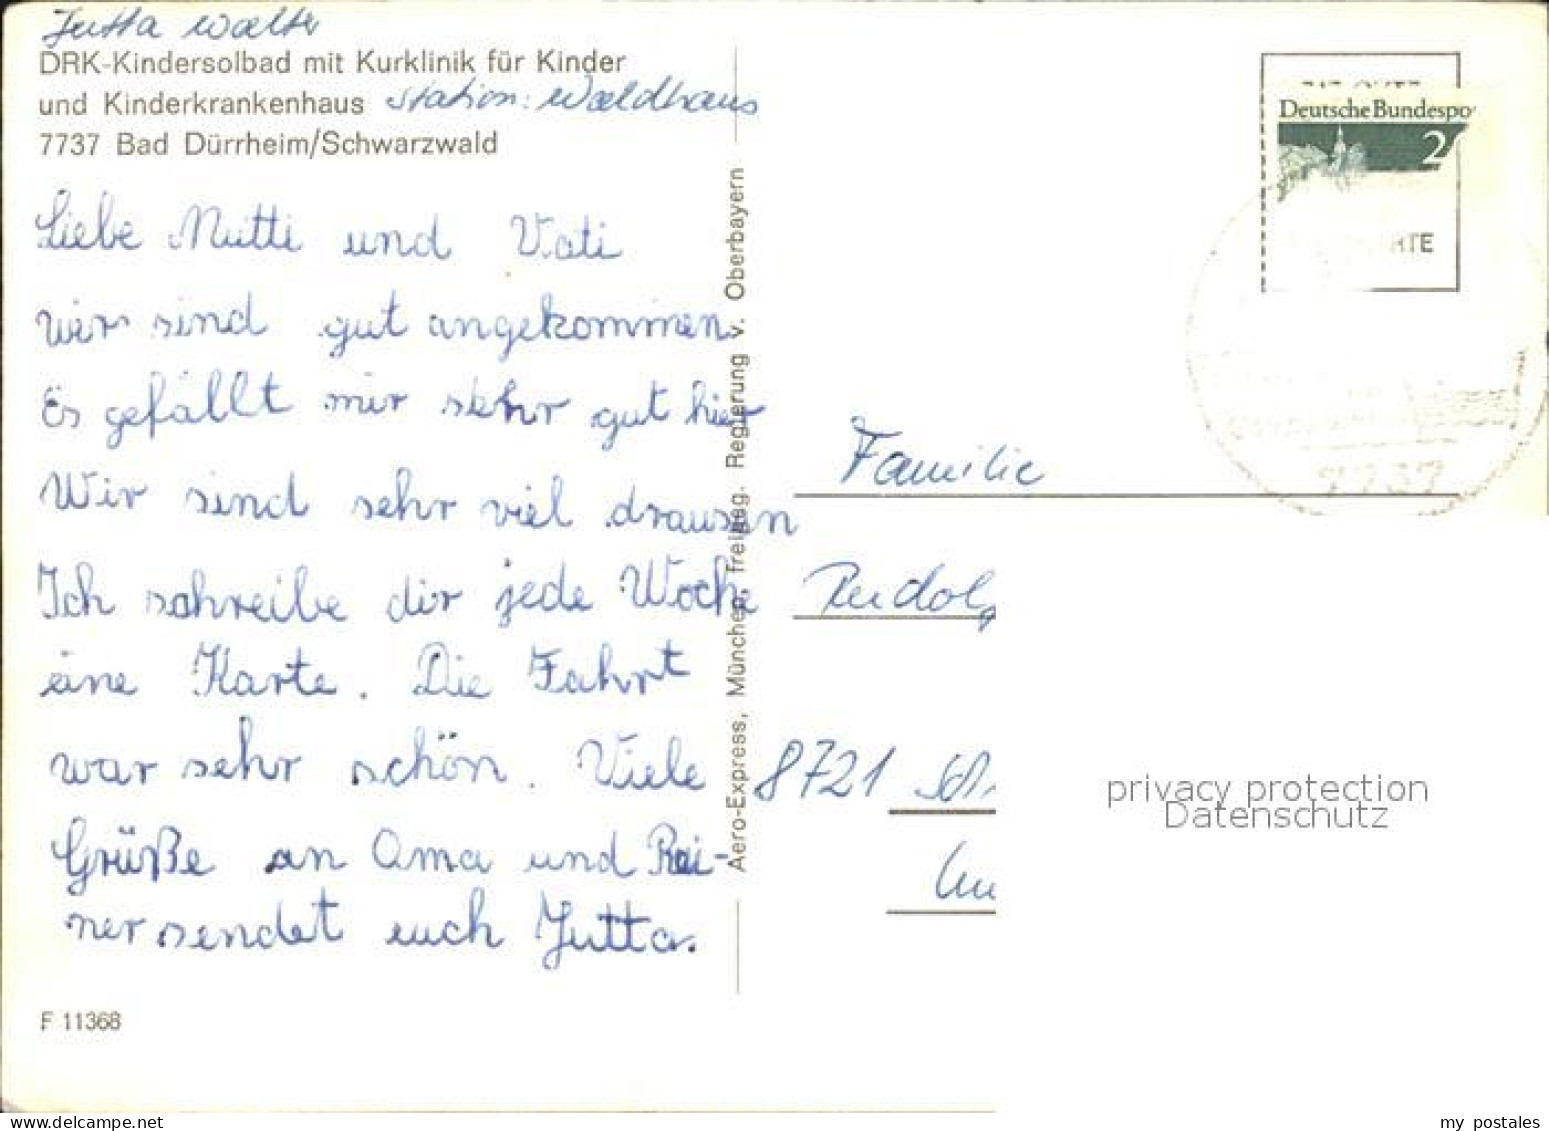 Jutta Walter
DRK-Kindersolbad mit Kurklinik für Kinder
und Kinderkrankenhaus Station: Waldhaus
7737 Bad Dürrheim/Schwarzwald
Liebe Mutti und Vati
wir sind gut angekommen.
Es gefällt mir sehr gut hier
Wir sind sehr viel drausen
Ich schreibe dir jede Woche
eine Karte. Die Fahrt
war sehr schön. Viele
Grüße an Oma und Rei-
ner sendet euch Jutta.
F 11368
Aero-Express, München, freigeg. Regierung v. Oberbayern
Deutsche Bundespo
2
RTE
7737
Familie
Rudolp
8721
privacy protection
Datenschutz
my postales